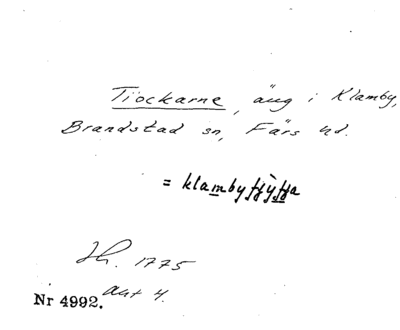 Tiockarne, äng i Klamby,
Brandstad sn, Färs hd.
= klamby
Sk. 1775
akt 4.
Nr 4992.